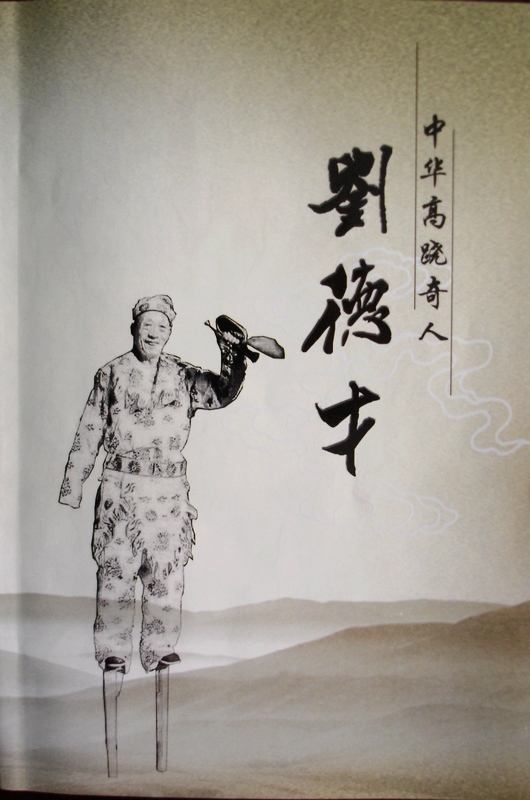 中华高跷奇人
劉德才